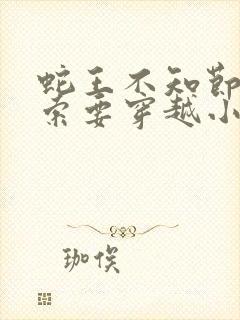 蛇王不知節
索要穿越小
珈俟